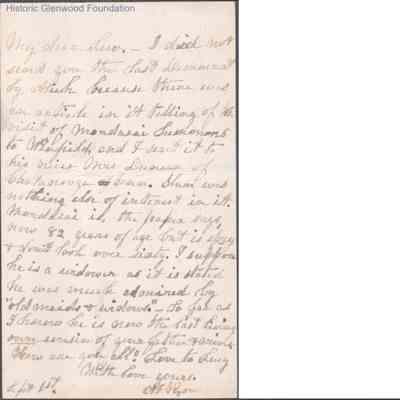 Historic Glenwood Foundation
My dear — I did not
send you the last Democrat
by because there was
an article in it telling of the
visit of Mordecai Simmons
to and I sent it to
his niece Mrs of
Chattanooga Tenn. There was
nothing else of interest in it.
Mordecai is, the paper says,
now 82 years of age but is spry
& don't look over sixty. I suppose
he is a widower as it is stated
he was much admired by
"old maids & widows" — So far as
I know he is now the last living
own cousin of your father & mine.
How are you all? Love to Lucy
With love yours.
Sept 1st.